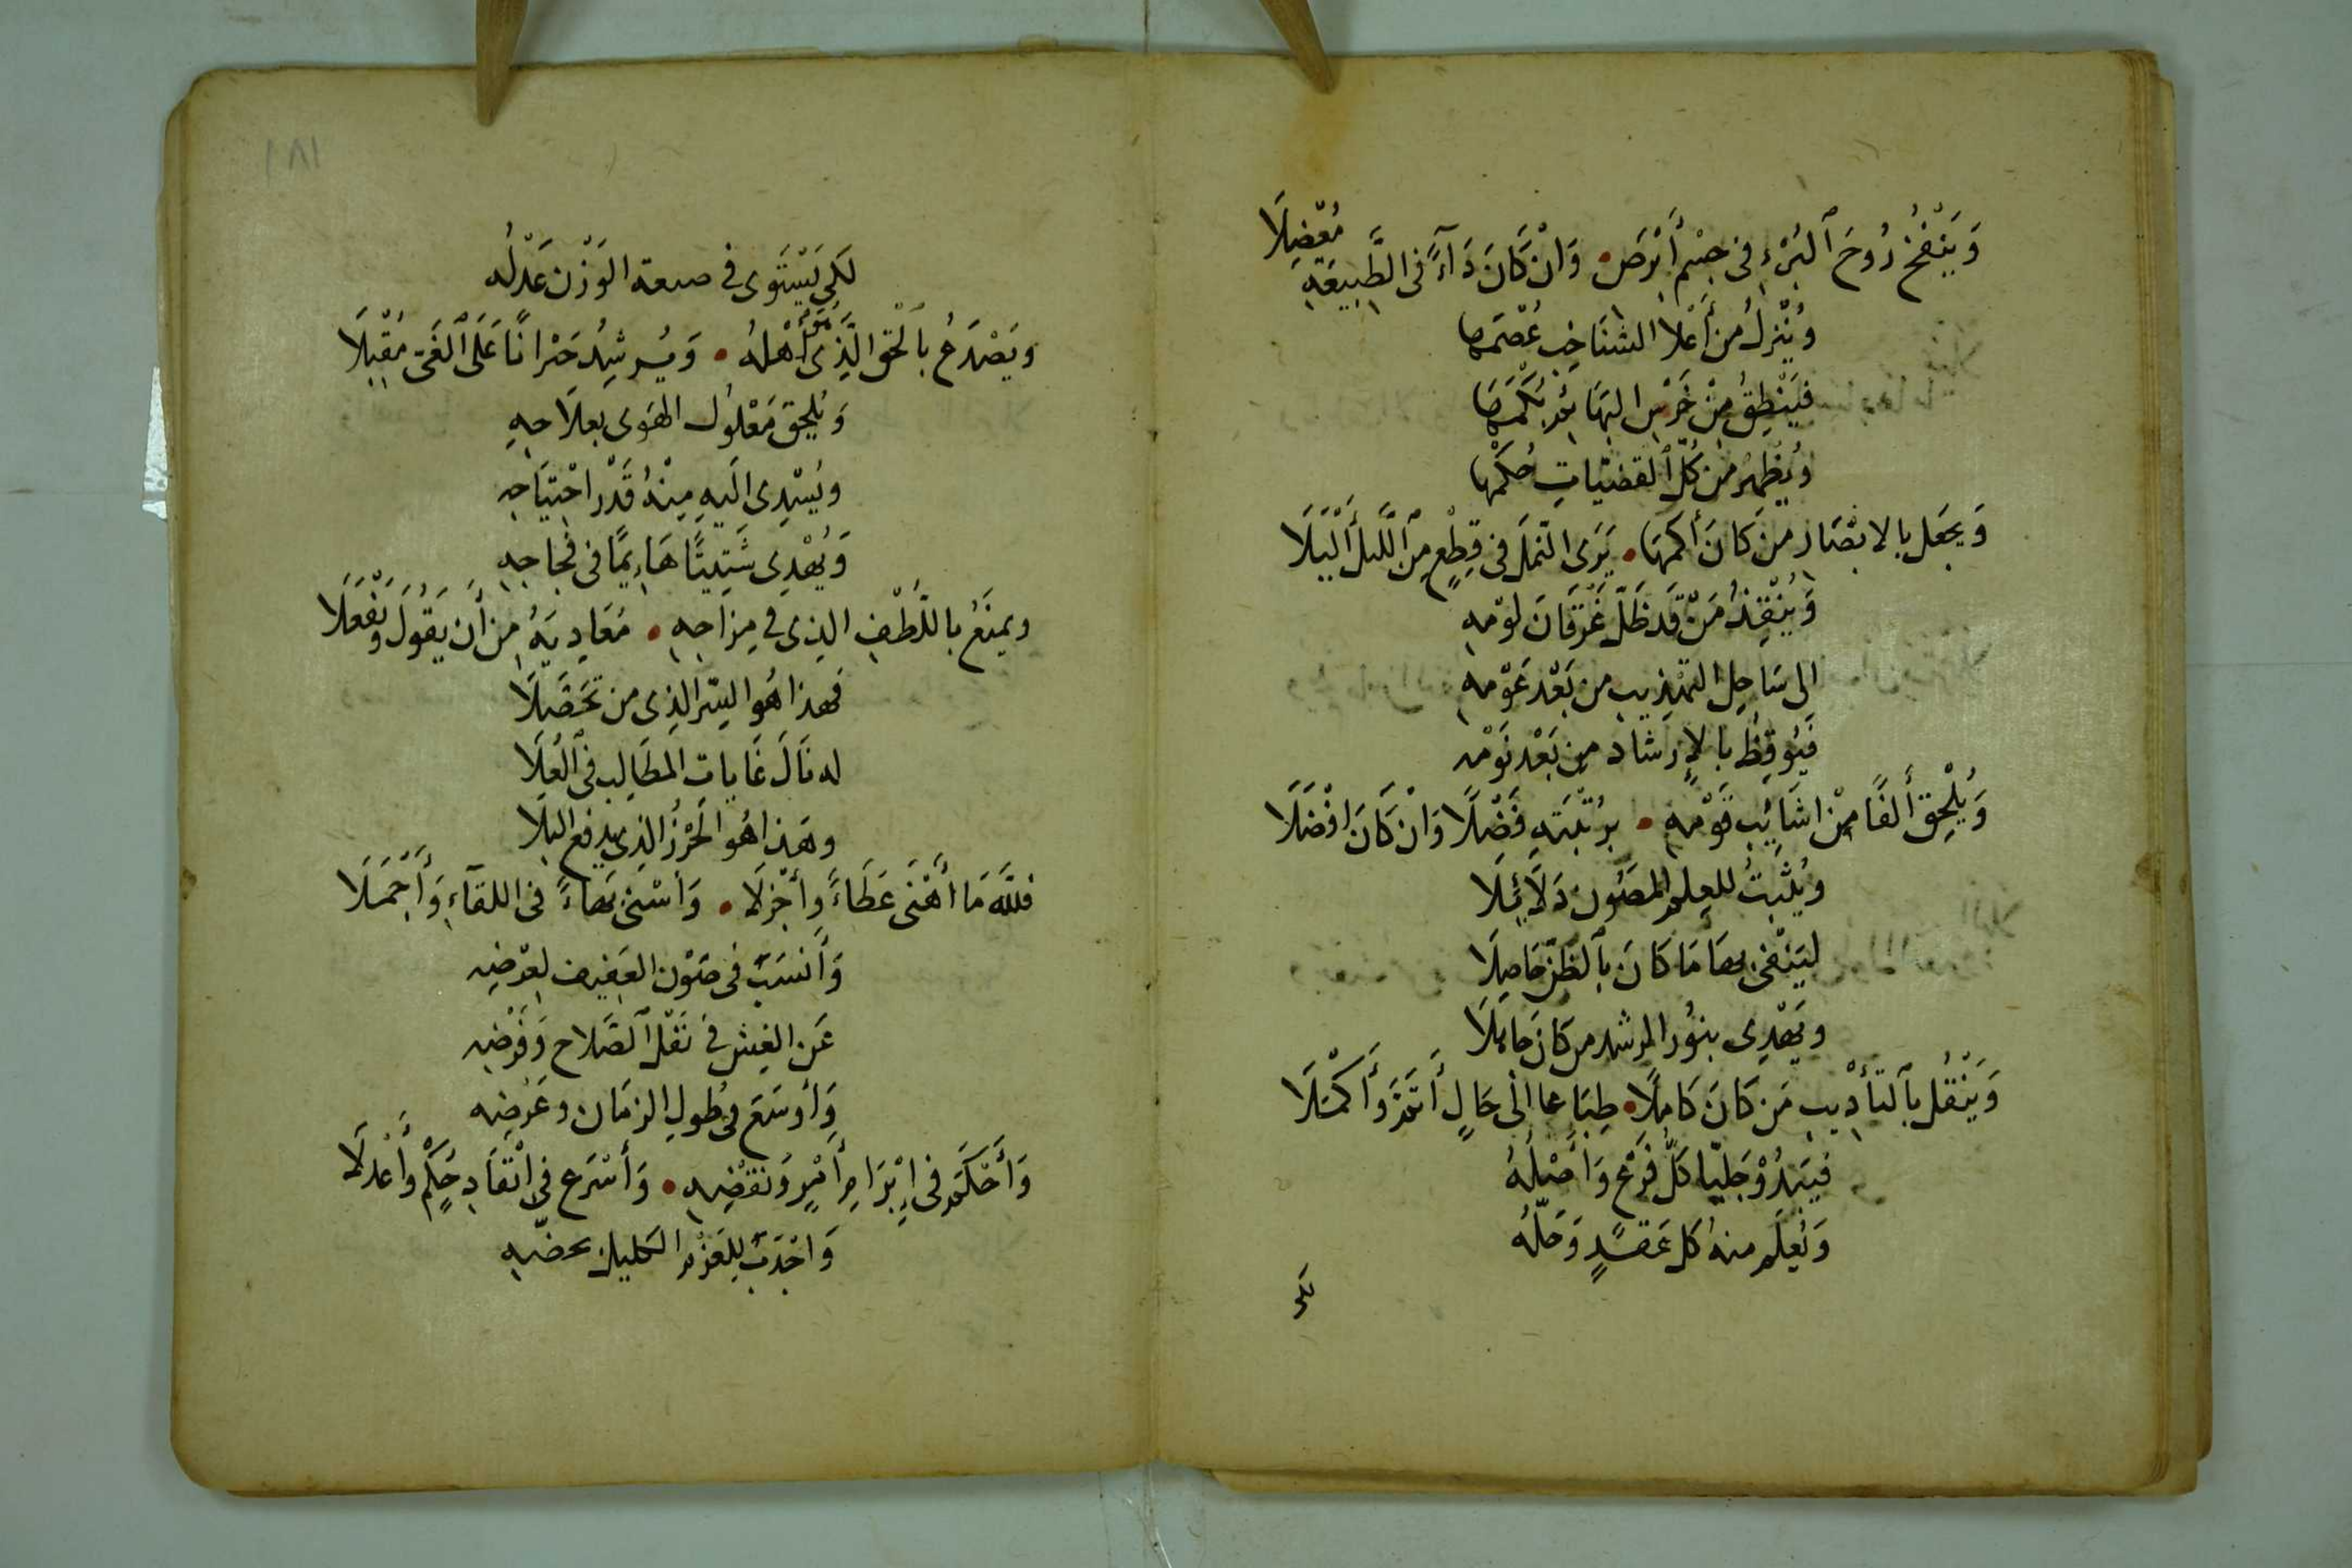 وَيَنْفُخُ رُوحَ ٱلبُرْءِ فى جِسْمِ أَبْرَصٍ • وَانْ كَانَ دَآءً فى الطَّبِيعَةِ مُعْضِلَا
وَيُنْزِلُ من أَعْلا الشنَاخِبِ عُصْمَها
فيَنْطِقُ مِنْ خَرْسِ البهَائِمِ بُكْمَهَا
ويُظْهِرُ من كلّ ٱلقضيّاتِ حُكْمَها
وَيجعَل بالابْصَارِ مَن كَانَ أَكْمَهَا • يَرَى النّملَ فى قِطْعٍ مِنَ ٱللَّيل أَلْيَلَا
وَيُنْقِذُ مَنْ قَد ظَلّ غَرْقَانَ لَوْمِهِ
الى سَاحِلِ التهذِيبِ من بَعْدِ عَوْمِهِ
فَيُوقِظُ بالإرشاد مِن بَعْدِ نَوْمِهِ
وَيُلْحِق أَلفًا مِنْ اشَائِبِ قَوْمِهِ • برُتْبَتِهِ فَضْلًا وَانْ كَانَ افْضَلَا
ويُثْبِتُ للعِلمِ المصُونِ دَلَائِلَا
ليَنْفى بها مَا كَانَ بٱلظنّ حَاصِلَا
ويَهْدِى بنُور المرشد من كانَ
وَيَنْقُل بٱلتأْدِيبِ مَن كَانَ كَامِلًا • طِبَاعا الى حَالٍ أَتَمَّ وَأَكْمَلَا
فيَبْدُوْ جَلِيّا كلُّ فَرْعٍ وَأَصْلُهُ
وَيُعْلَم منهُ كل عَقدٍ وَحَلّهُ
لكى
١٨١
لكَى يَسْتَوِى فى صنعة الوَزْن عَدْلُه
ويَصْدَعُ بٱلْحَقِ الَّذِى هُوَ أَهْلهُ • وَيُرشِدُ حَيْرانًا عَلَى ٱلغَىّ مُقْبِلَا
وَيُلْحِق مَعْلُول الهَوى بعِلَاجِهِ
ويُسْدِى اليهِ مِنْهُ قَدْرَ احْتِيَاجِهِ
وَيُهْدِى شَتِيتًا هَاءِيمًا فى فجاجِهِ
ويمنَعُ باللّطْفِ الذى فى مِزاجِهِ • مُعَادِيَهُ من أَن يَقُولَ وَيَفْعَلَا
فهذا هُو السِرّ الذِى من تحَصَّلَا
له نَالَ غَايات المطَالِبِ فى ٱلعُلَا
وهَذا هُو الحَرْزُ الذِى يدفع البَلَا
فللّه مَا أَهْنَى عَطَاءً وأجْزلَا • وَأسْنى بهاءً فى اللقآءِ وَأَجْمَلَا
وَأَنسَبَ فى صَوْنِ العَفِيفِ لعِرْضِهِ
عَن الغِش فى نَفْلِ ٱلصَّلاحِ وَفَرْضِهِ
وَأوسَعَ فى طُولِ الزمَان وعَرْضِهِ
وَأَحْكَمَ فى إِبْرَامِ أَمْرٍ وَنَقْضِهِ • وَأَسْرَع فى حُكْمٍ وأَعْدلَا
وَاجْذبَ لِلعَزْمِ الكليل بحضّهِ